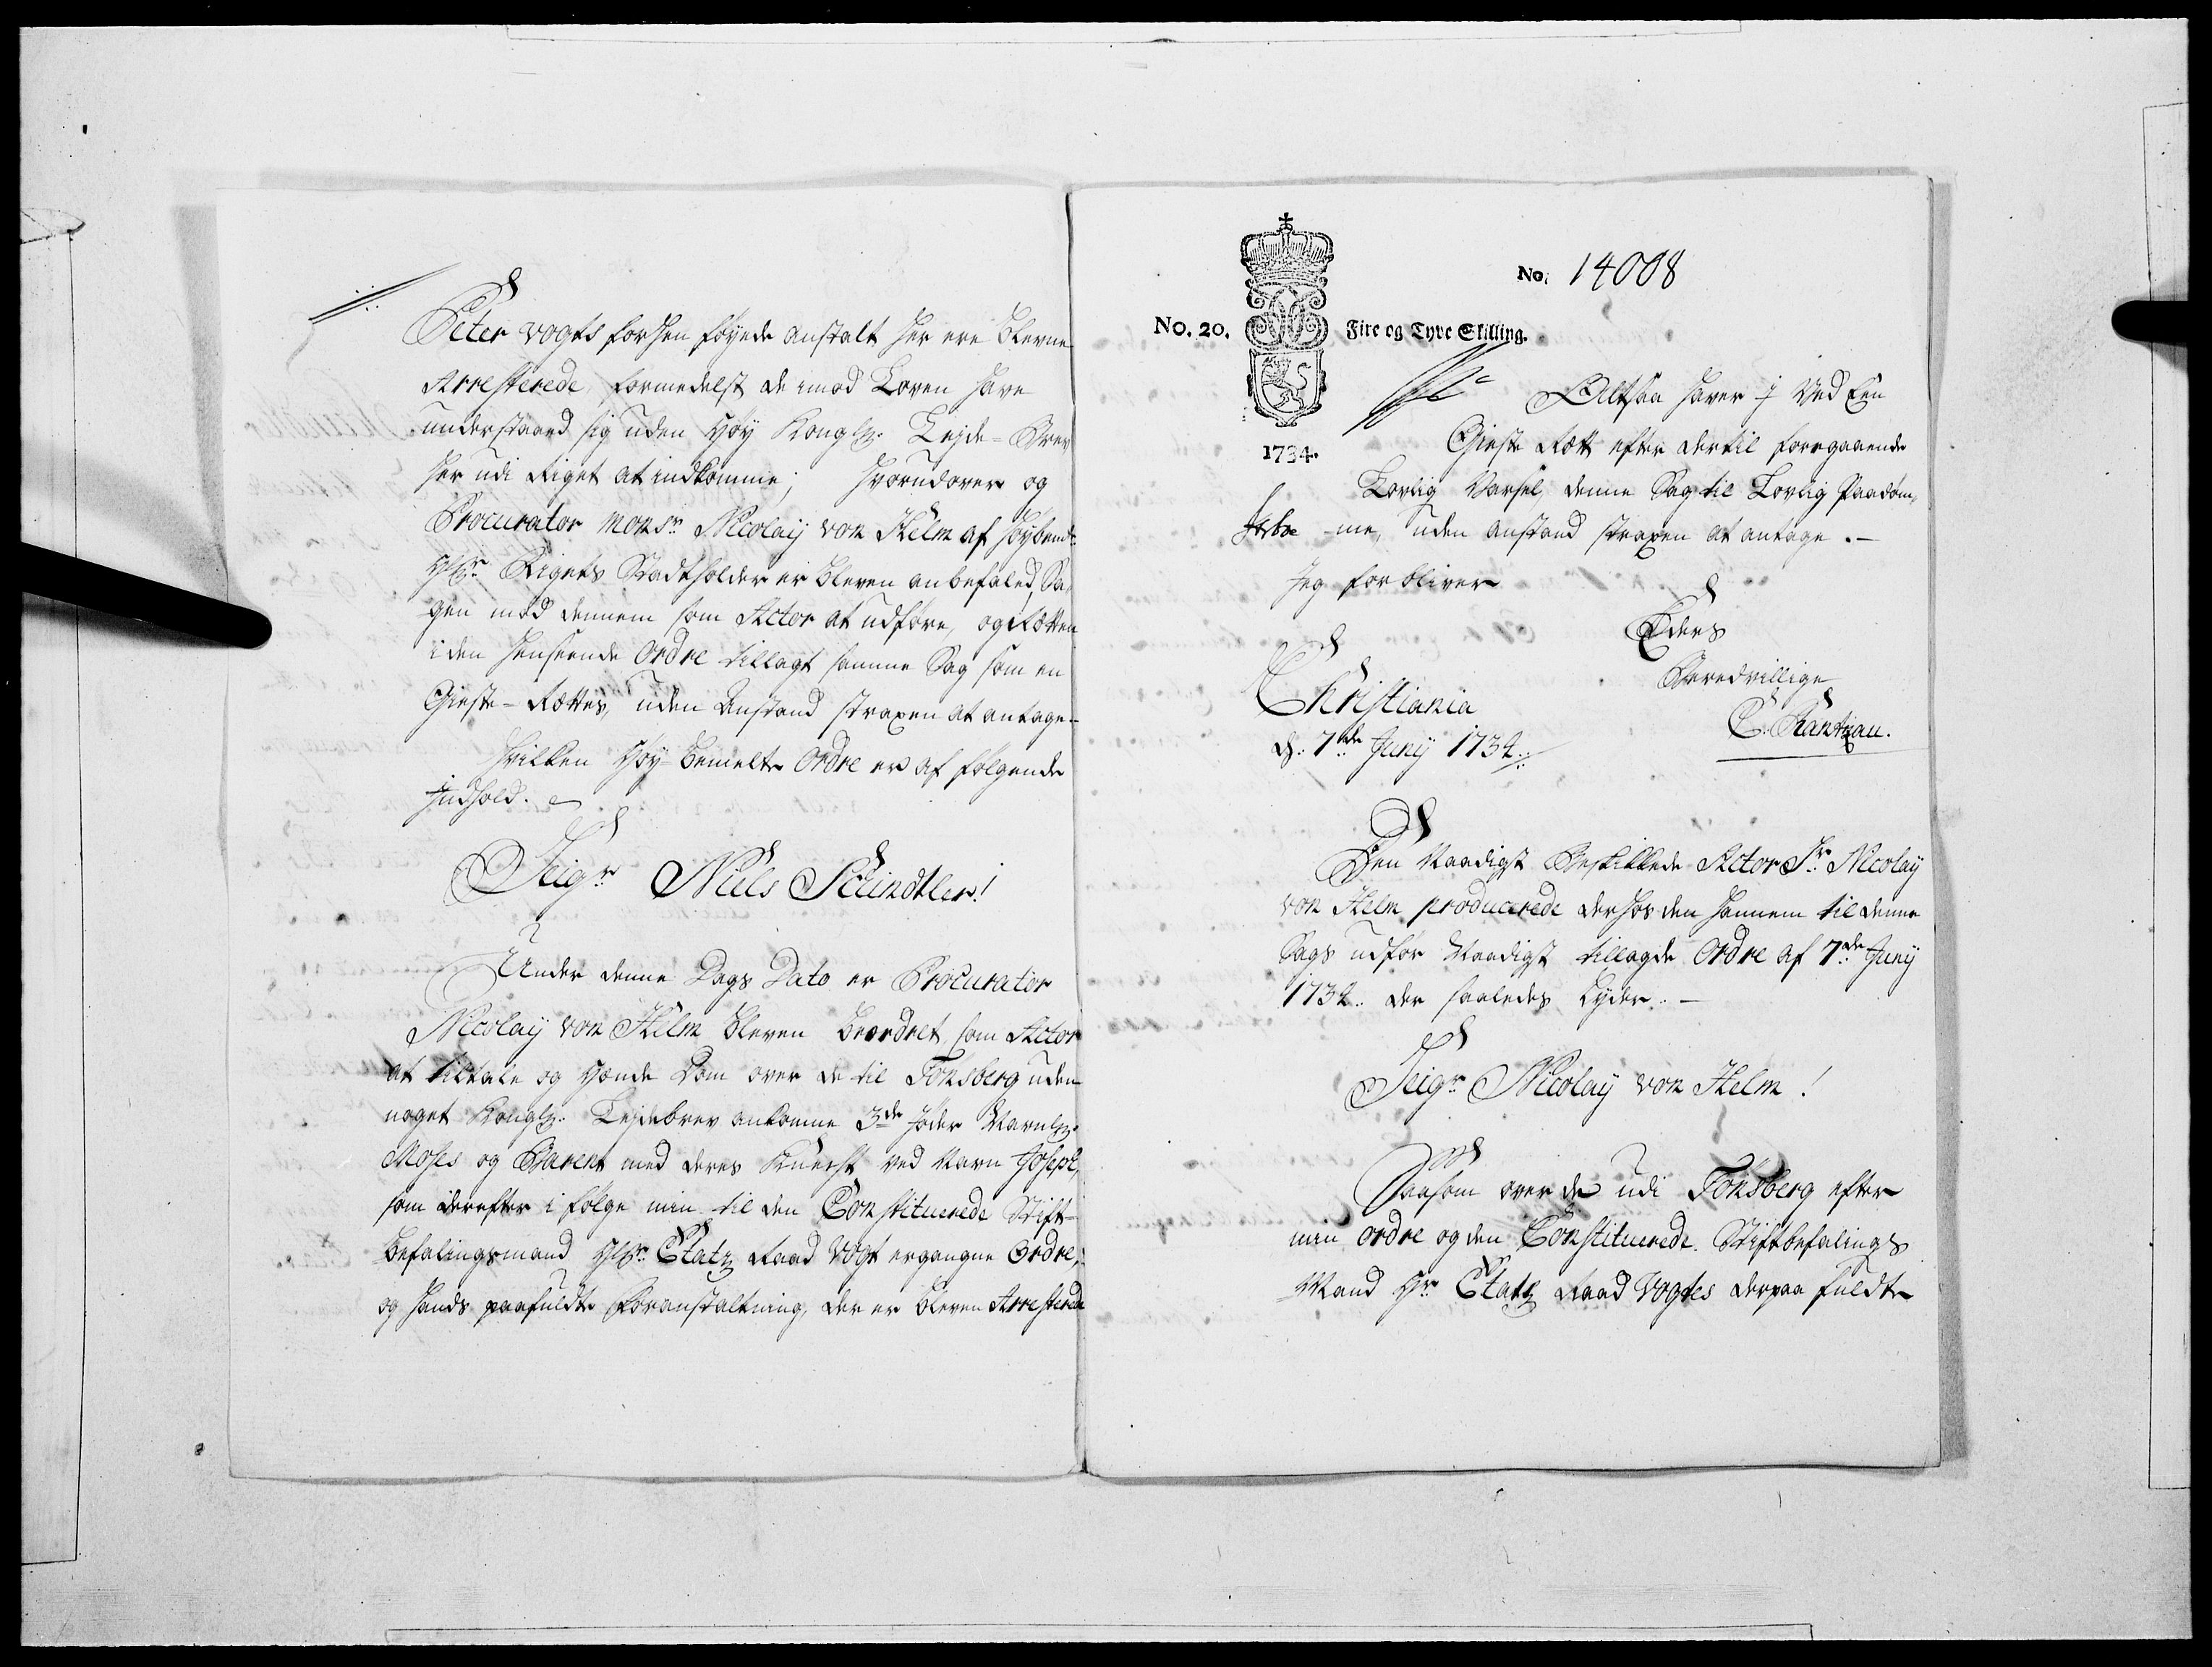 Peter Vogts forhen føyede anstalt her ere blevne
Arresterede, formedelst de imod Loven have
understaaed sig uden Høy Kongl: Lejde-Brev
her udi Riget at indkomme; hvorudover og
Procurator Monsr Nicolaij von Helm af Høybemt:
Hr Rigets Stadtholder er bleven anbefaled, Sa,
gen mod dennem som Actor at udføre, og Rætten
i den henseende Ordre tillagt samme Sag som en
Gieste-Rættes, uden Anstand straxen at antage.
Hvilken Høy-bemelte Ordre er af følgende
Indhold.
Seigr Niels Schindtler!
Under denne Dags Dato er Procurator
Nicolaij von Helm bleven beordret som Actor
at tiltale og hænde Dom over de til Tønsberg uden
noget Kongl: Lejdebrev ankomne 3de Jøder Navnl:
Moses og Barent med deres Knecht ved Navn Joseph,
som derefter i følge min til den Constituerede Stift-
befalingsmand Hr: Etatz Raad Vogt ergangne Ordre,
og hands paafuldte Foranstaltning, der er bleven Arresterede
No. 14008
No. 20. Fire og Tyve Skilling.
1734.
Altsaa haver I Ved Een
Gieste Rætt efter dertil foregaaende
Lovlig Varsel, denne Sag til Lovlig Paadøm,
-me, uden anstand straxen at antage.
Jeg forbliver
Eders
Beredvillige
Christiania
C: Rantzau.
d: 7de Junij 1734.
Den Naadigst Beskikkede Actor Sr: Nicolaij
von Helm producerede derhos den hannem til denne
Sags udfør Naadigst tillagde Ordre af 7de Junij
1734. der saaledes Lyder.
Seigr Nicolaij von Helm!
Saasom over de udi Tønsberg efter
min ordre og den Constituerede Stiftbefalings
Mand Hr Etatz Raad Vogtes derpaa fuldte